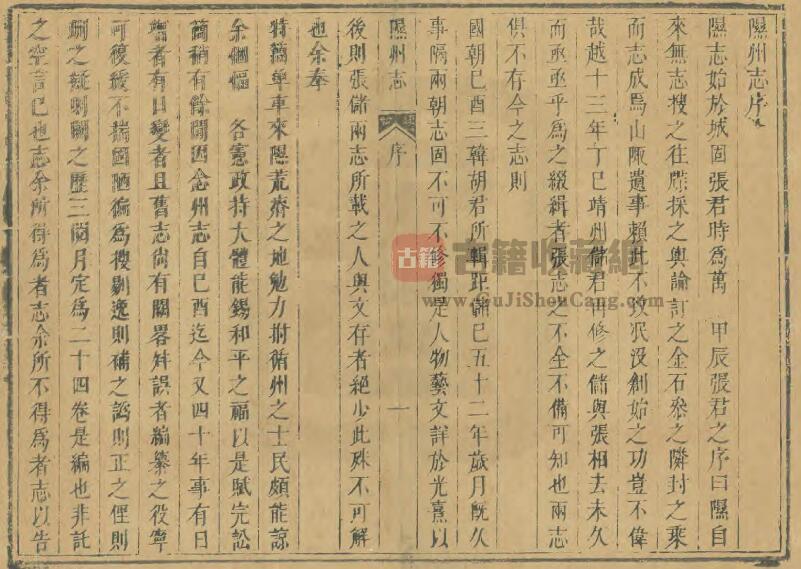 隰州志序
隰志始於城固張君時為萬　甲辰張君之序曰隰自
來無志搜之往牒採之輿論訂之金石叅之隣封之乗
而志成焉山陬遺事賴此不致泯没創始之功豈不偉
哉越十三年丁巳靖州儲君再修之儲與張相去未久
而亟亟乎為之綴緝者張志之不全不備可知也兩志
俱不存今之志則
國朝巳酉三韓胡君所輯距儲巳五十二年歲月旣久
事隔兩朝志固不可不修獨是人物藝文詳於光熹以
隰州志
序
一
後則張儲兩志所載之人與文存者絶少此殊不可解
也余奉
特簡單車來隰荒瘠之地勉力拊循州之士民頗能諒
余悃愊　各憲政持大體能錫和平之福以是賦完訟
簡稍有餘閒因念州志自巳酉迄今又四十年事有日
增者有日變者且舊志尚有闕畧舛誤者編纂之役寧
可復緩不揣固陋徧為搜剔逸則補之譌則正之俚則
刪之疑則闕之歷三閱月定為二十四卷是編也非託
之空言巳也志余所得為者志余所不得為者志以告
古籍
古籍收藏網
www.GuJiShouCang.com